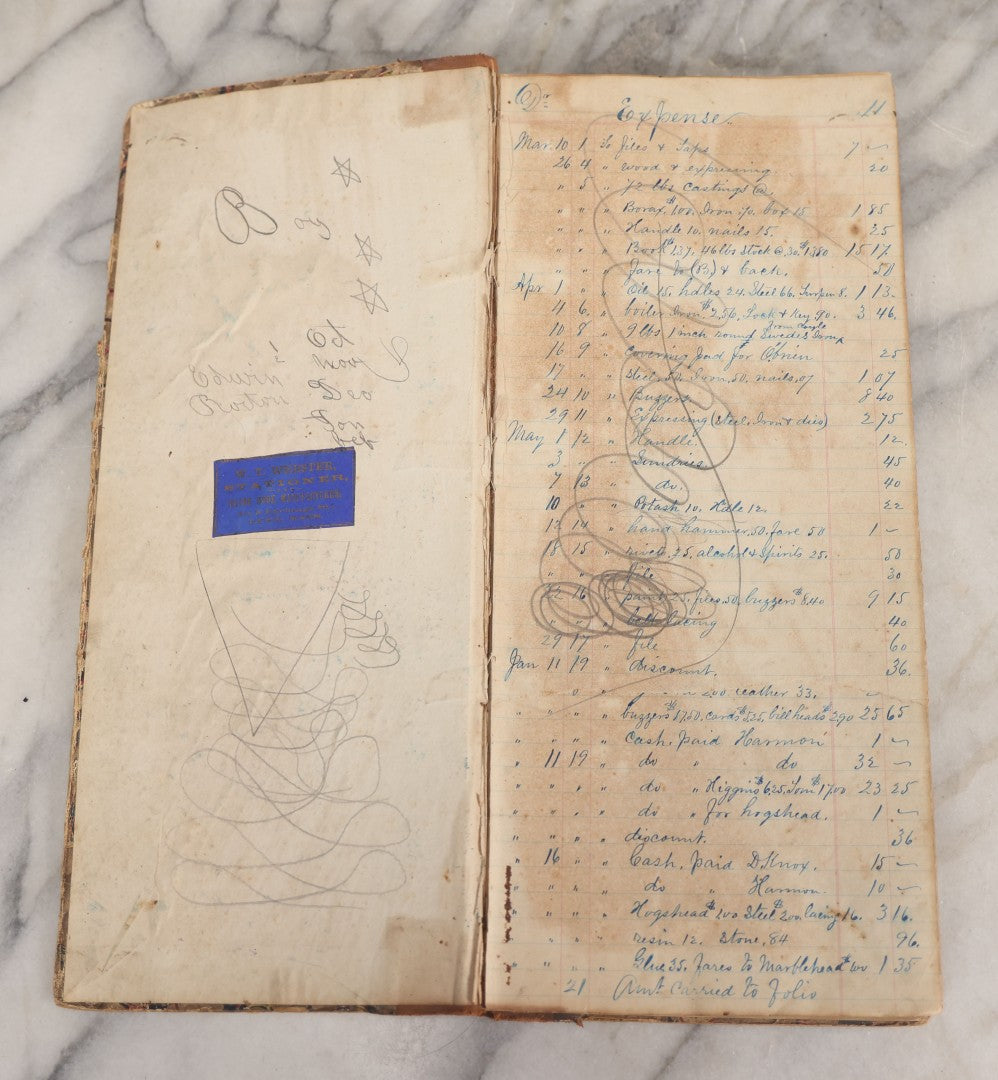 B oy
Od
Nov
Edwin
Deo
Rocton
STATIONER,
Dr
Expense
11
Mar. 10 1 To files & Taps 7 —
26 4 " wood & expressing. 20
" 5 " 72 lbs castings @
" " " Borax $1.00. Iron 70. box 15. 1 85
" " " Handle 10. nails 15. 25
" " " Book $1.37. 46 lbs Stock @ .30. $13.80 15 17
" " " Fare to & back. 50
Apr 1 " " Oil 15. hdles 24. Steel 66. Turpen 8. 1 13.
4 6 " boiler Iron $2.56. Lock & Key 90. 3 46.
10 8 " 9 lbs 1 inch round Swedes Iron
16 9 " covering pad for O'brien 25
17 " " steel .50. Iron .50. nails .07 1 07
24 10 " Buzzers. 8 40
29 11 " Expressing (steel. Iron & dies) 2 75
May 1 12 " Handle. 12.
3 " " Sundries 45
7 13 " do. 40
10 " " Potash 10. Hdle 12. 22
12 14 " hand hammer .50. Fare 50 1 —
18 15 " rivets .25. alcohol & spirits 25. 50
" " " file 30
16 " 25. files .50. buzzers $8.40 9 15
" " " belt lacing 40
29 17 " file 60
Jan 11 19 " discount. 36.
" 2.00 leather 33. —
" " " " buzzers $17.50. cards $5.25. bill heads $2.90 25 65
" " " " Cash. paid Harmon 1 —
" 11 19 " do " do 32 —
" " " " do " Higgins $6.25. Tom $17.00 23 25
" " " " do " for hogshead. 1 —
" " " " discount. 36
" 16 " " Cash. paid D. Knox. 15 —
" " " " do " Harmon. 10 —
" " " " Hogshead $1.00 Steel $2.00. lacing 16. 3 16.
" " " " resin 12. Stone .84 96.
" " " " Glue 35. Fares to Marblehead $1.00 1 35
21 Amt carried to folio